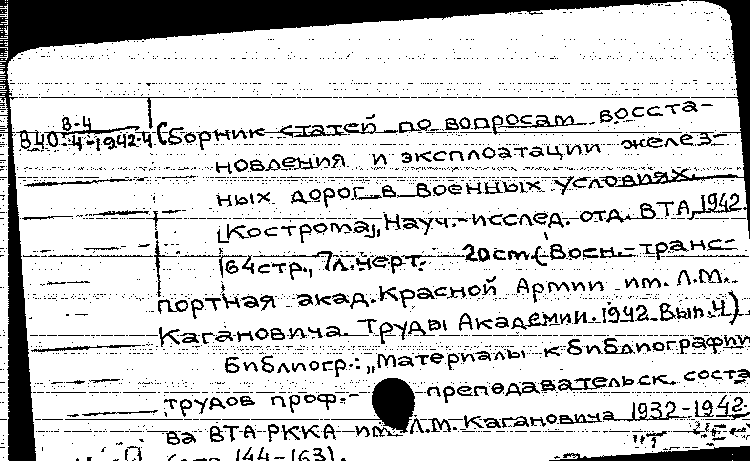 В-4
840:4-1942.4 Сборник статей по вопросам восста-
новления и эксплоатации желез-
ных дорог в военных условиях.
[Кострома], Науч.-исслед. отд. ВТА, 1942.
164стр., 7л.черт. 20см. (Воен.-транс-
портная акад. Красной Армии им. Л.М.
Кагановича. Труды Академии. 1942. Вып.4).
Библиогр.: „Материалы к библиографии
трудов проф.- преподавательск. соста
ва ВТА РККА им. Л.М. Кагановича 1932-1942
144-163).